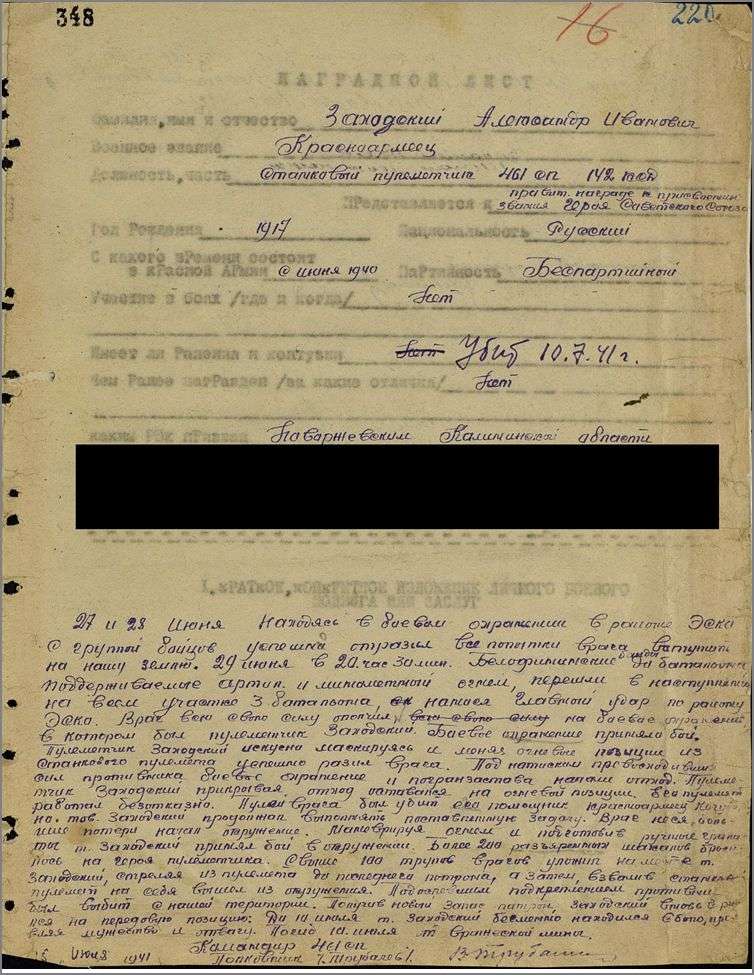 348
16
220
НАГРАДНОЙ ЛИСТ
Фамилия, имя и отчество Заходский Александр Иванович
Военное звание Красноармеец
Должность, часть Станковый пулеметчик 461 сп 142
правит. награде к присвоению
Представляется к звания Героя Советского Союза
Год Рождения 1917 Национальность Русский
С какого времени состоит
в Красной Армии с июня 1940 Партийность Беспартийный
Участие в боях /где и когда/ Нет
Имеет ли Ранения и контузии Нет Убит 10.7.41 г.
Чем Ранее награжден /за какие отличия/ Нет
каким РВК призван Новоржевским Калининской области
1. КРАТКОЕ, КОНКРЕТНОЕ ИЗЛОЖЕНИЕ ЛИЧНОГО БОЕВОГО
ПОДВИГА ИЛИ ЗАСЛУГ
27 и 28 июня находясь в боевом охранении в районе Эско
с группой бойцов успешно отразил все попытки врага вступить
на нашу землю. 29 июня в 20 час 30 мин. Белофинские до батальона
поддерживаемые артил. и минометный огнем, перешли в наступление
на всем участке 3 батальона, нанося главный удар по району
Эско. Враг всю свою силу обрушил всю свою силу на боевое охранение,
в котором был пулеметчик Заходский. Боевое охранение приняло бой.
Пулеметчик Заходский искусно маскируясь и меняя огневые позиции из
станкового пулемета успешно разил врага. Под натиском превосходивших
сил противника боевое охранение и погранзастава начали отход. Пулеме-
тчик Заходский прикрывая отход остался на огневой позиции. Его пулемет
работал безотказно. Пулей врага был убит его помощник красноармеец
но тов. Заходский продолжал выполнять поставленную задачу. Враг неся боль-
шие потери начал окружение. Маневрируя огнем и подготовив ручные грана-
ты т. Заходский принял бой в окружении. Более 200 разъяренных шакалов броси-
лось на героя пулеметчика. Свыше 100 трупов врагов уложил на месте т.
Заходский, стреляя из пулемета до последнего патрона, а затем, взвалив станковый
пулемет на себя вышел из окружения. Подоспевшим подкреплением противник
был выбит с нашей територии. Получив новый запас патрон, Заходский вновь
на передовую позицию. До 10 июля т. Заходский бессменно находился в бою,
мужество и отвагу. Погиб 10 июля от вражеской мины.
Командир 461 сп
июля 1941 Полковник /Трубачев/.